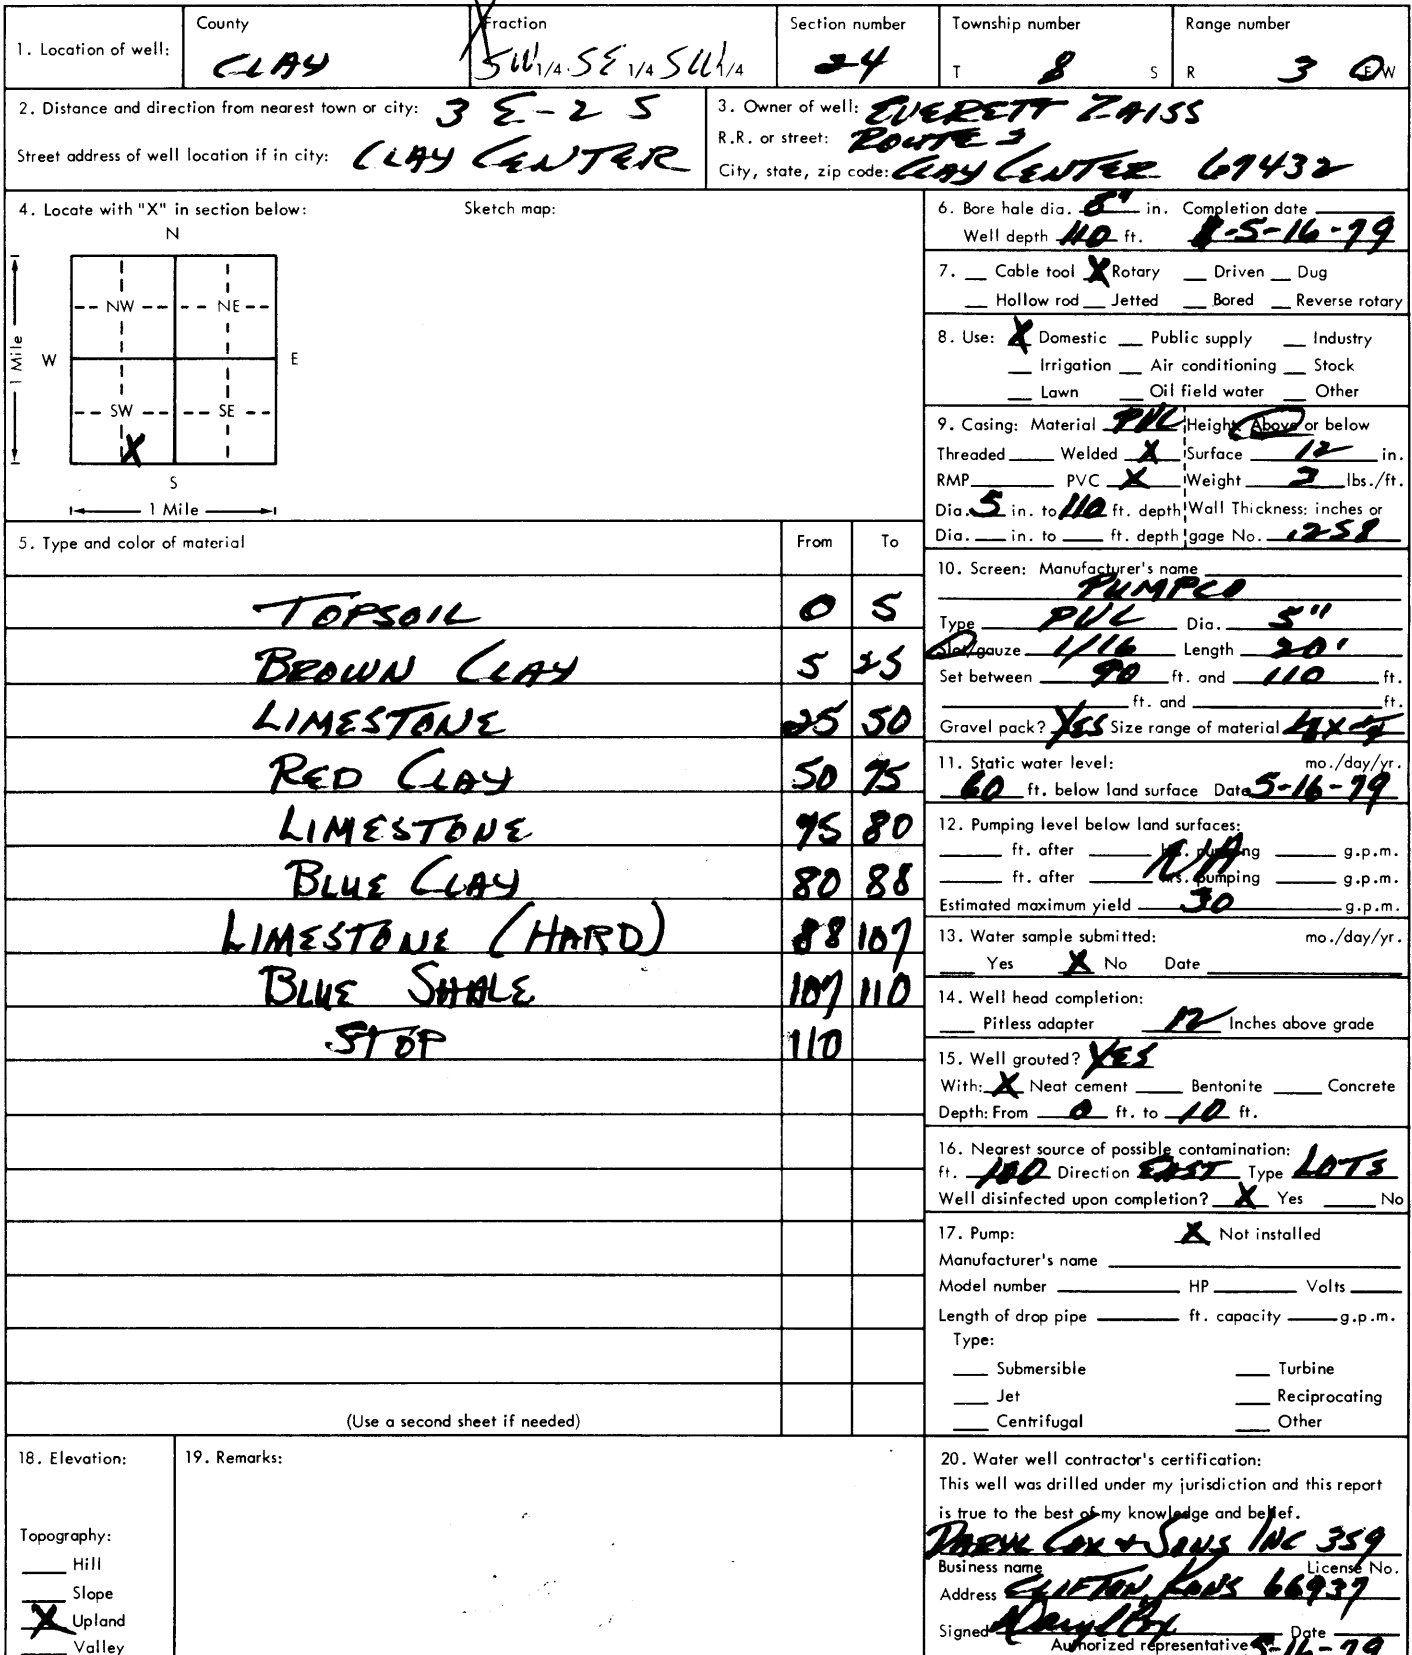 County Fraction Section number Township number Range number
1. Location of well: CLAY SW 1/4 SE 1/4 SW 1/4 24 T 8 S R 3 E W
2. Distance and direction from nearest town or city: 3 E-2 S
Street address of well location if in city: CLAY CENTER
3. Owner of well: EVERETT ZAISS
R.R. or street: ROUTE 3
City, state, zip code: CLAY CENTER 67432
4. Locate with "X" in section below: Sketch map:
N
NW NE
1 Mile W E
SW SE
X
S
1 Mile
5. Type and color of material From To
TOPSOIL 0 5
BROWN CLAY 5 25
LIMESTONE 25 50
RED CLAY 50 75
LIMESTONE 75 80
BLUE CLAY 80 88
LIMESTONE (HARD) 88 107
BLUE SHALE 107 110
STOP 110
(Use a second sheet if needed)
6. Bore hale dia. 8" in. Completion date
Well depth 110 ft. 5-16-79
7. Cable tool X Rotary Driven Dug
Hollow rod Jetted Bored Reverse rotary
8. Use: X Domestic Public supply Industry
Irrigation Air conditioning Stock
Lawn Oil field water Other
9. Casing: Material PVC Height: Above or below
Threaded Welded X Surface 12 in.
RMP PVC X Weight 3 lbs./ft.
Dia. 5 in. to 110 ft. depth Wall Thickness: inches or
Dia. in. to ft. depth gage No. .258
10. Screen: Manufacturer's name
PUMPCO
Type PVC Dia. 5"
Slot/gauze 1/16 Length 20'
Set between 90 ft. and 110 ft.
ft. and ft.
Gravel pack? YES Size range of material
11. Static water level: mo./day/yr.
60 ft. below land surface Date 5-16-79
12. Pumping level below land surfaces:
ft. after hrs. pumping g.p.m.
N/A
ft. after hrs. pumping g.p.m.
Estimated maximum yield 30 g.p.m.
13. Water sample submitted: mo./day/yr.
Yes X No Date
14. Well head completion:
Pitless adapter 12 Inches above grade
15. Well grouted? YES
With: X Neat cement Bentonite Concrete
Depth: From 0 ft. to 10 ft.
16. Nearest source of possible contamination:
ft. 100 Direction EAST Type LOTS
Well disinfected upon completion? X Yes No
17. Pump: X Not installed
Manufacturer's name
Model number HP Volts
Length of drop pipe ft. capacity g.p.m.
Type:
Submersible Turbine
Jet Reciprocating
Centrifugal Other
18. Elevation:
Topography:
Hill
Slope
X Upland
Valley
19. Remarks:
20. Water well contractor's certification:
This well was drilled under my jurisdiction and this report
is true to the best of my knowledge and belief.
DARYL COX & SONS INC 359
Business name License No.
Address CLIFTON, KANS 66937
Signed Daryl Cox Date
Authorized representative 5-16-79